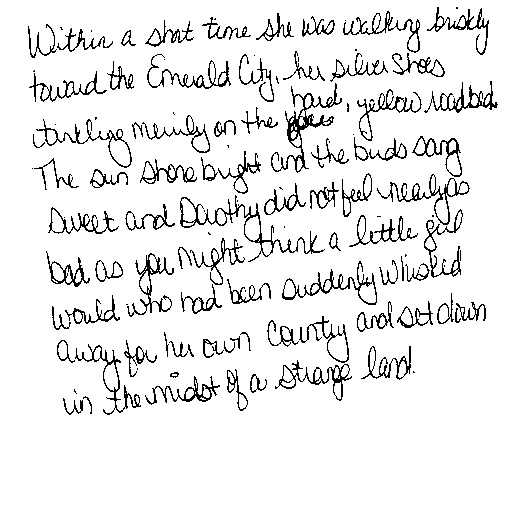 Within a short time she was walking briskly
toward the Emerald City, her silver shoes
tinkling merrily on the hard, yellow road bed.
The sun shone bright and the birds sang
sweet and Dorothy did not feel nearly as
bad as you might think a little girl
would who had been suddenly whisked
away for her own country and set down
in the midst of a strange land.